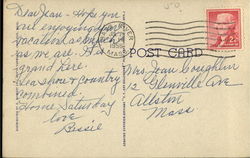 Dear Jean - Hope you
are enjoying your
vacation as much
as we are. It's
grand here.
Sea shore & country
combined.
Home Saturday
love
Bessie
MASS.
POST CARD
Mrs Jean Coughlin
12 Glenville Ave
Allston
Mass
2¢